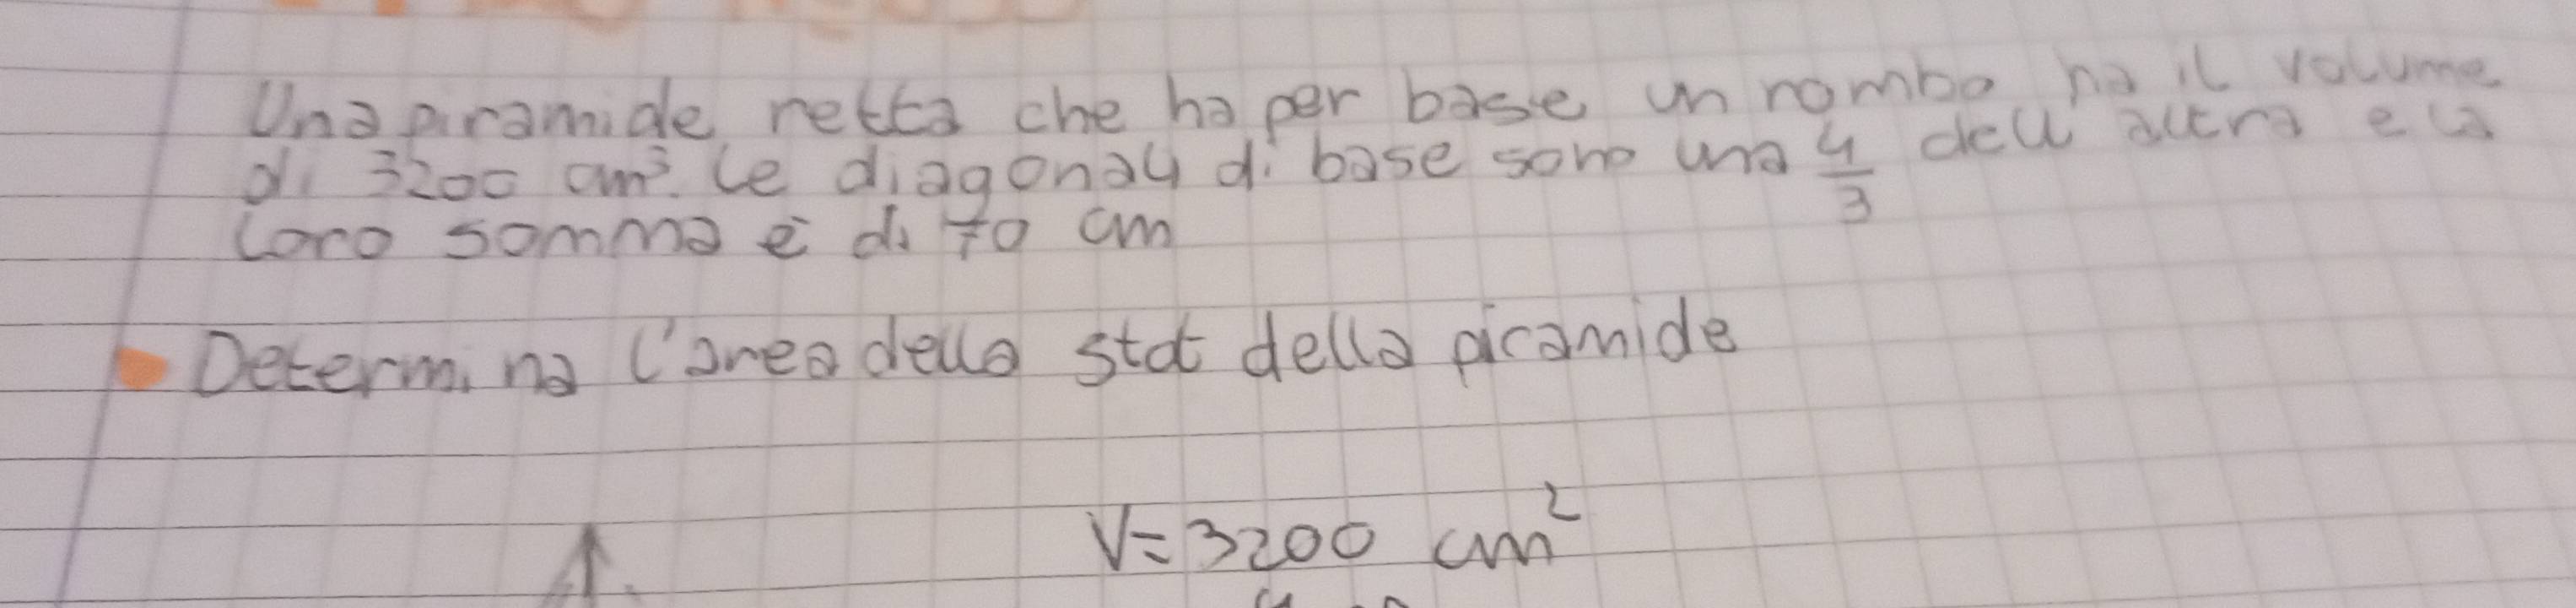 Una piramide retta che ha per base un rombo ha il volume
di 3200 cm³. Le diagonali di base sono una 4/3 dell'altra e la
loro somma è di 70 cm
Determina l'area della stot della piramide
V=3200 cm²